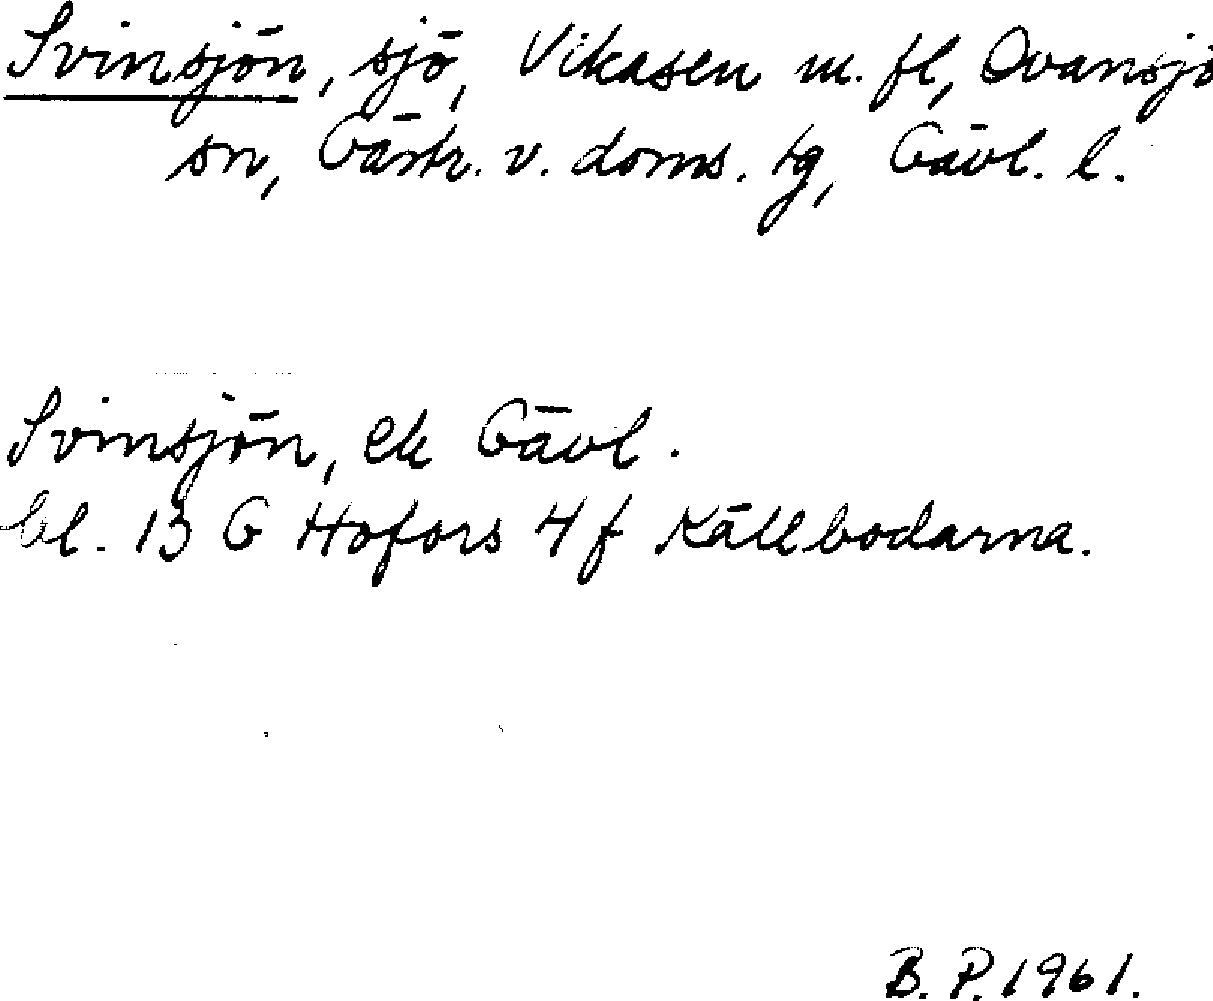 Svinsjön, sjö, Vikasen m. fl, Ovansjö
sn, Gästr. v. doms. tg, Gävl. l.
Svinsjön, ek Gävl.
bl. 13 G Hofors 4 f Källbodarna.
B. P. 1961.